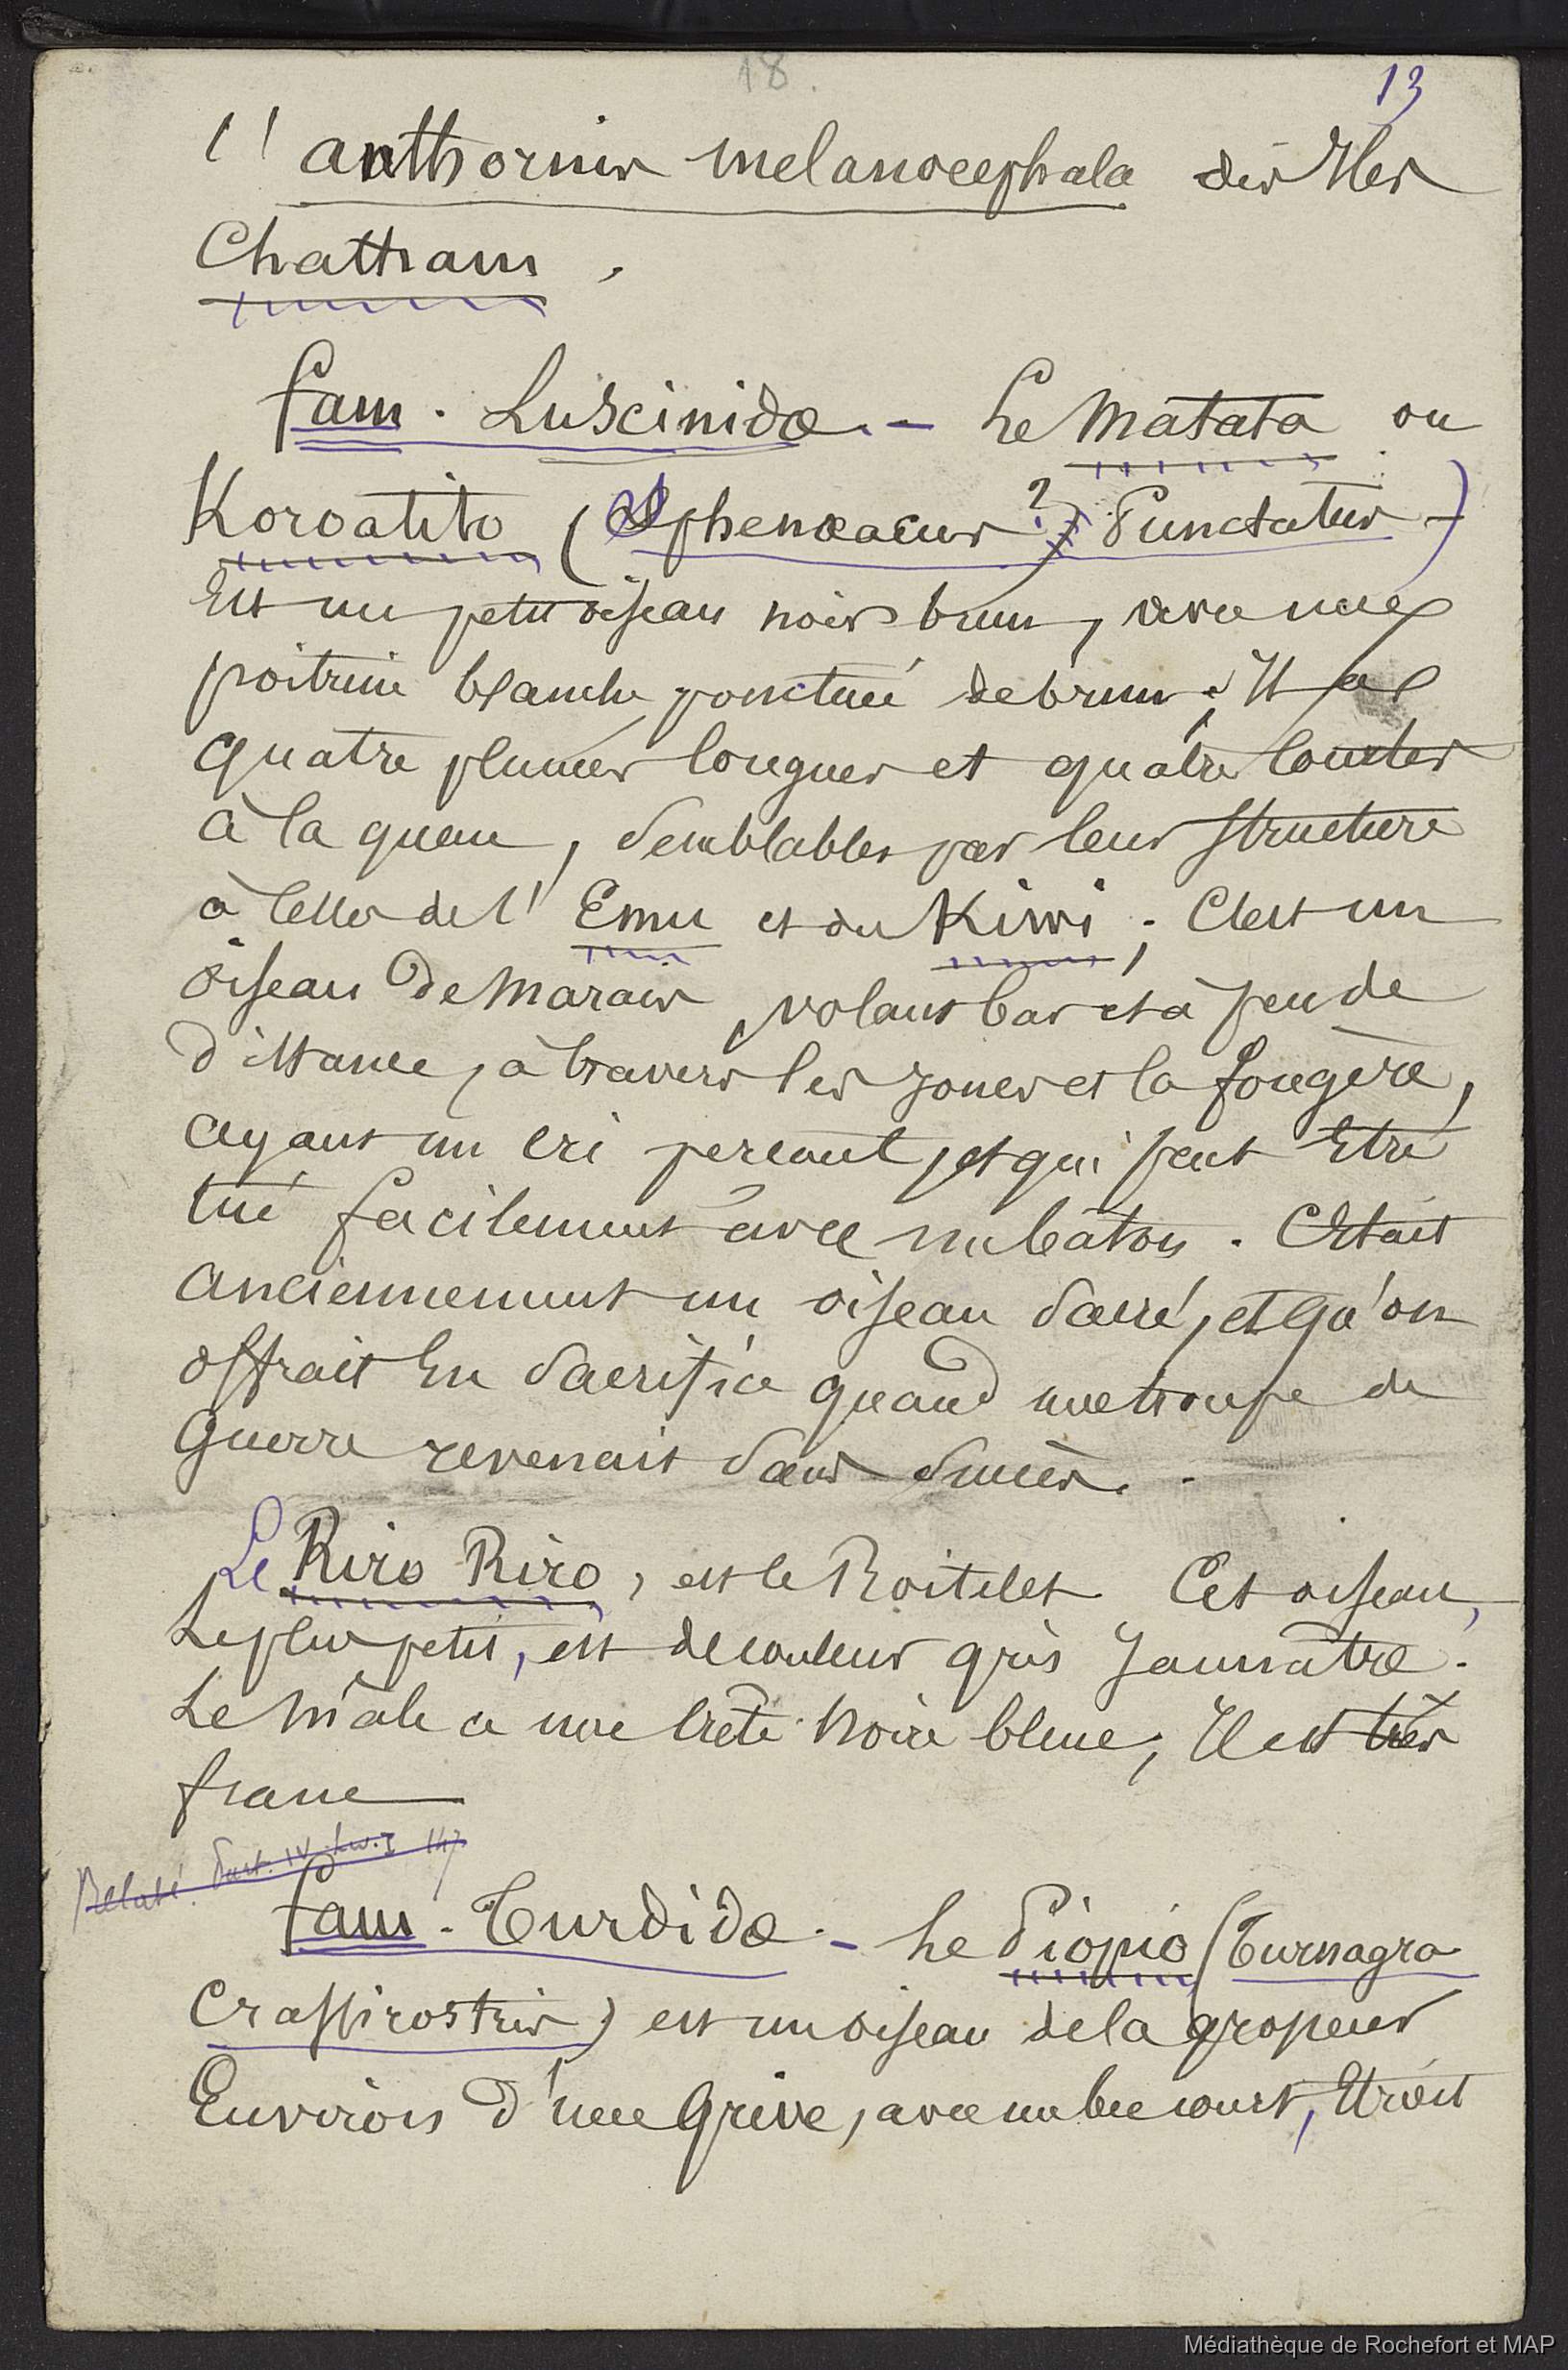 18.
13
l'anthornis melanocephala des Iles
Chattam.
Fam. Luscinidæ. - Le Matata ou
Koroatito (Sphenœacus ? Punctatus)
Est un petit oiseau noir brun, avec une
poitrine blanche ponctuée de brun ; Il a
quatre plumes longues et quatre courtes
à la queue, semblables par leur structure
à celles de l'Emu et du Kiwi ; C'est un
oiseau de marais, volant bas et à peu de
distance, à travers les joncs et la fougère,
ayant un cri percant, et qui peut être
tué facilement avec un bâton. C'était
anciennement un oiseau sacré, et qu'on
offrait En sacrifice quand une troupe de
Guerre revenait sans succès.
Le Riro Riro, est le Roitelet Cet oiseau,
Le plus petit, est de couleur gris Jaunâtre.
Le Mâle a une crête noire bleue ; Il est très
franc
Fam. Turdidæ. - Le Piopio (Turnagra
Crassirostris) est un oiseau de la grosseur
Environ d'une Grive, avec un bec court, Etroit
Médiathèque de Rochefort et MAP